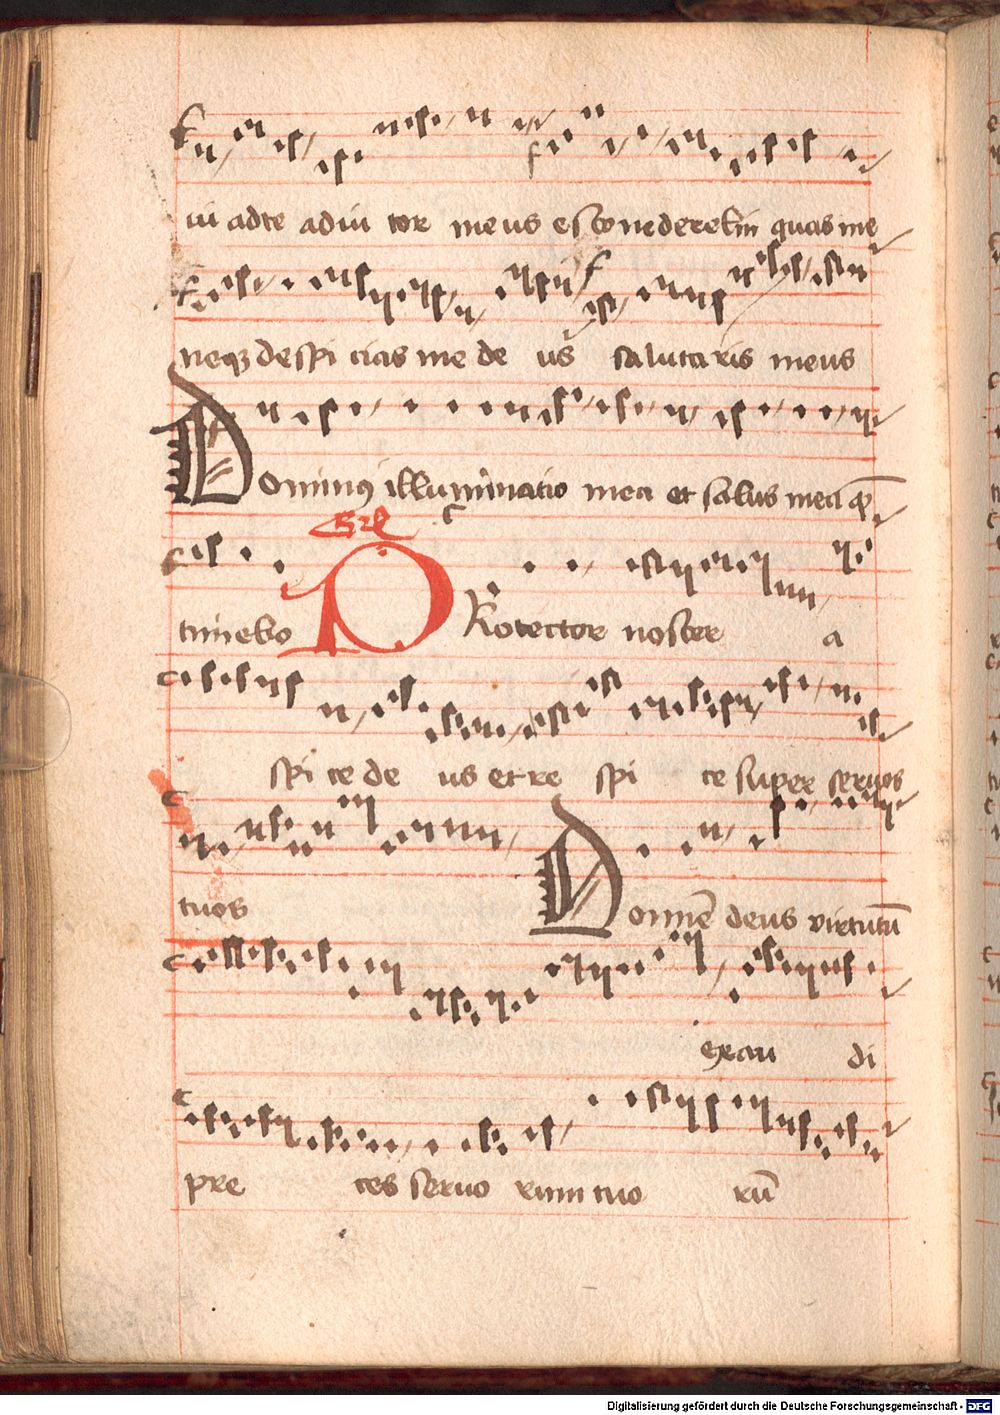 ui adte adiu tor meus esto nederelin quas me
neq; despi cias me de us salutaris meus
Dominus illuminatio mea et salus mea q
timebo Gre Protector noster a
spi ce de us et re spi ce super seruos
tuos Domine deus virtutū
exau di
pre ces seruo rum tuo rū
Digitalisierung gefördert durch die Deutsche Forschungsgemeinschaft - DFG